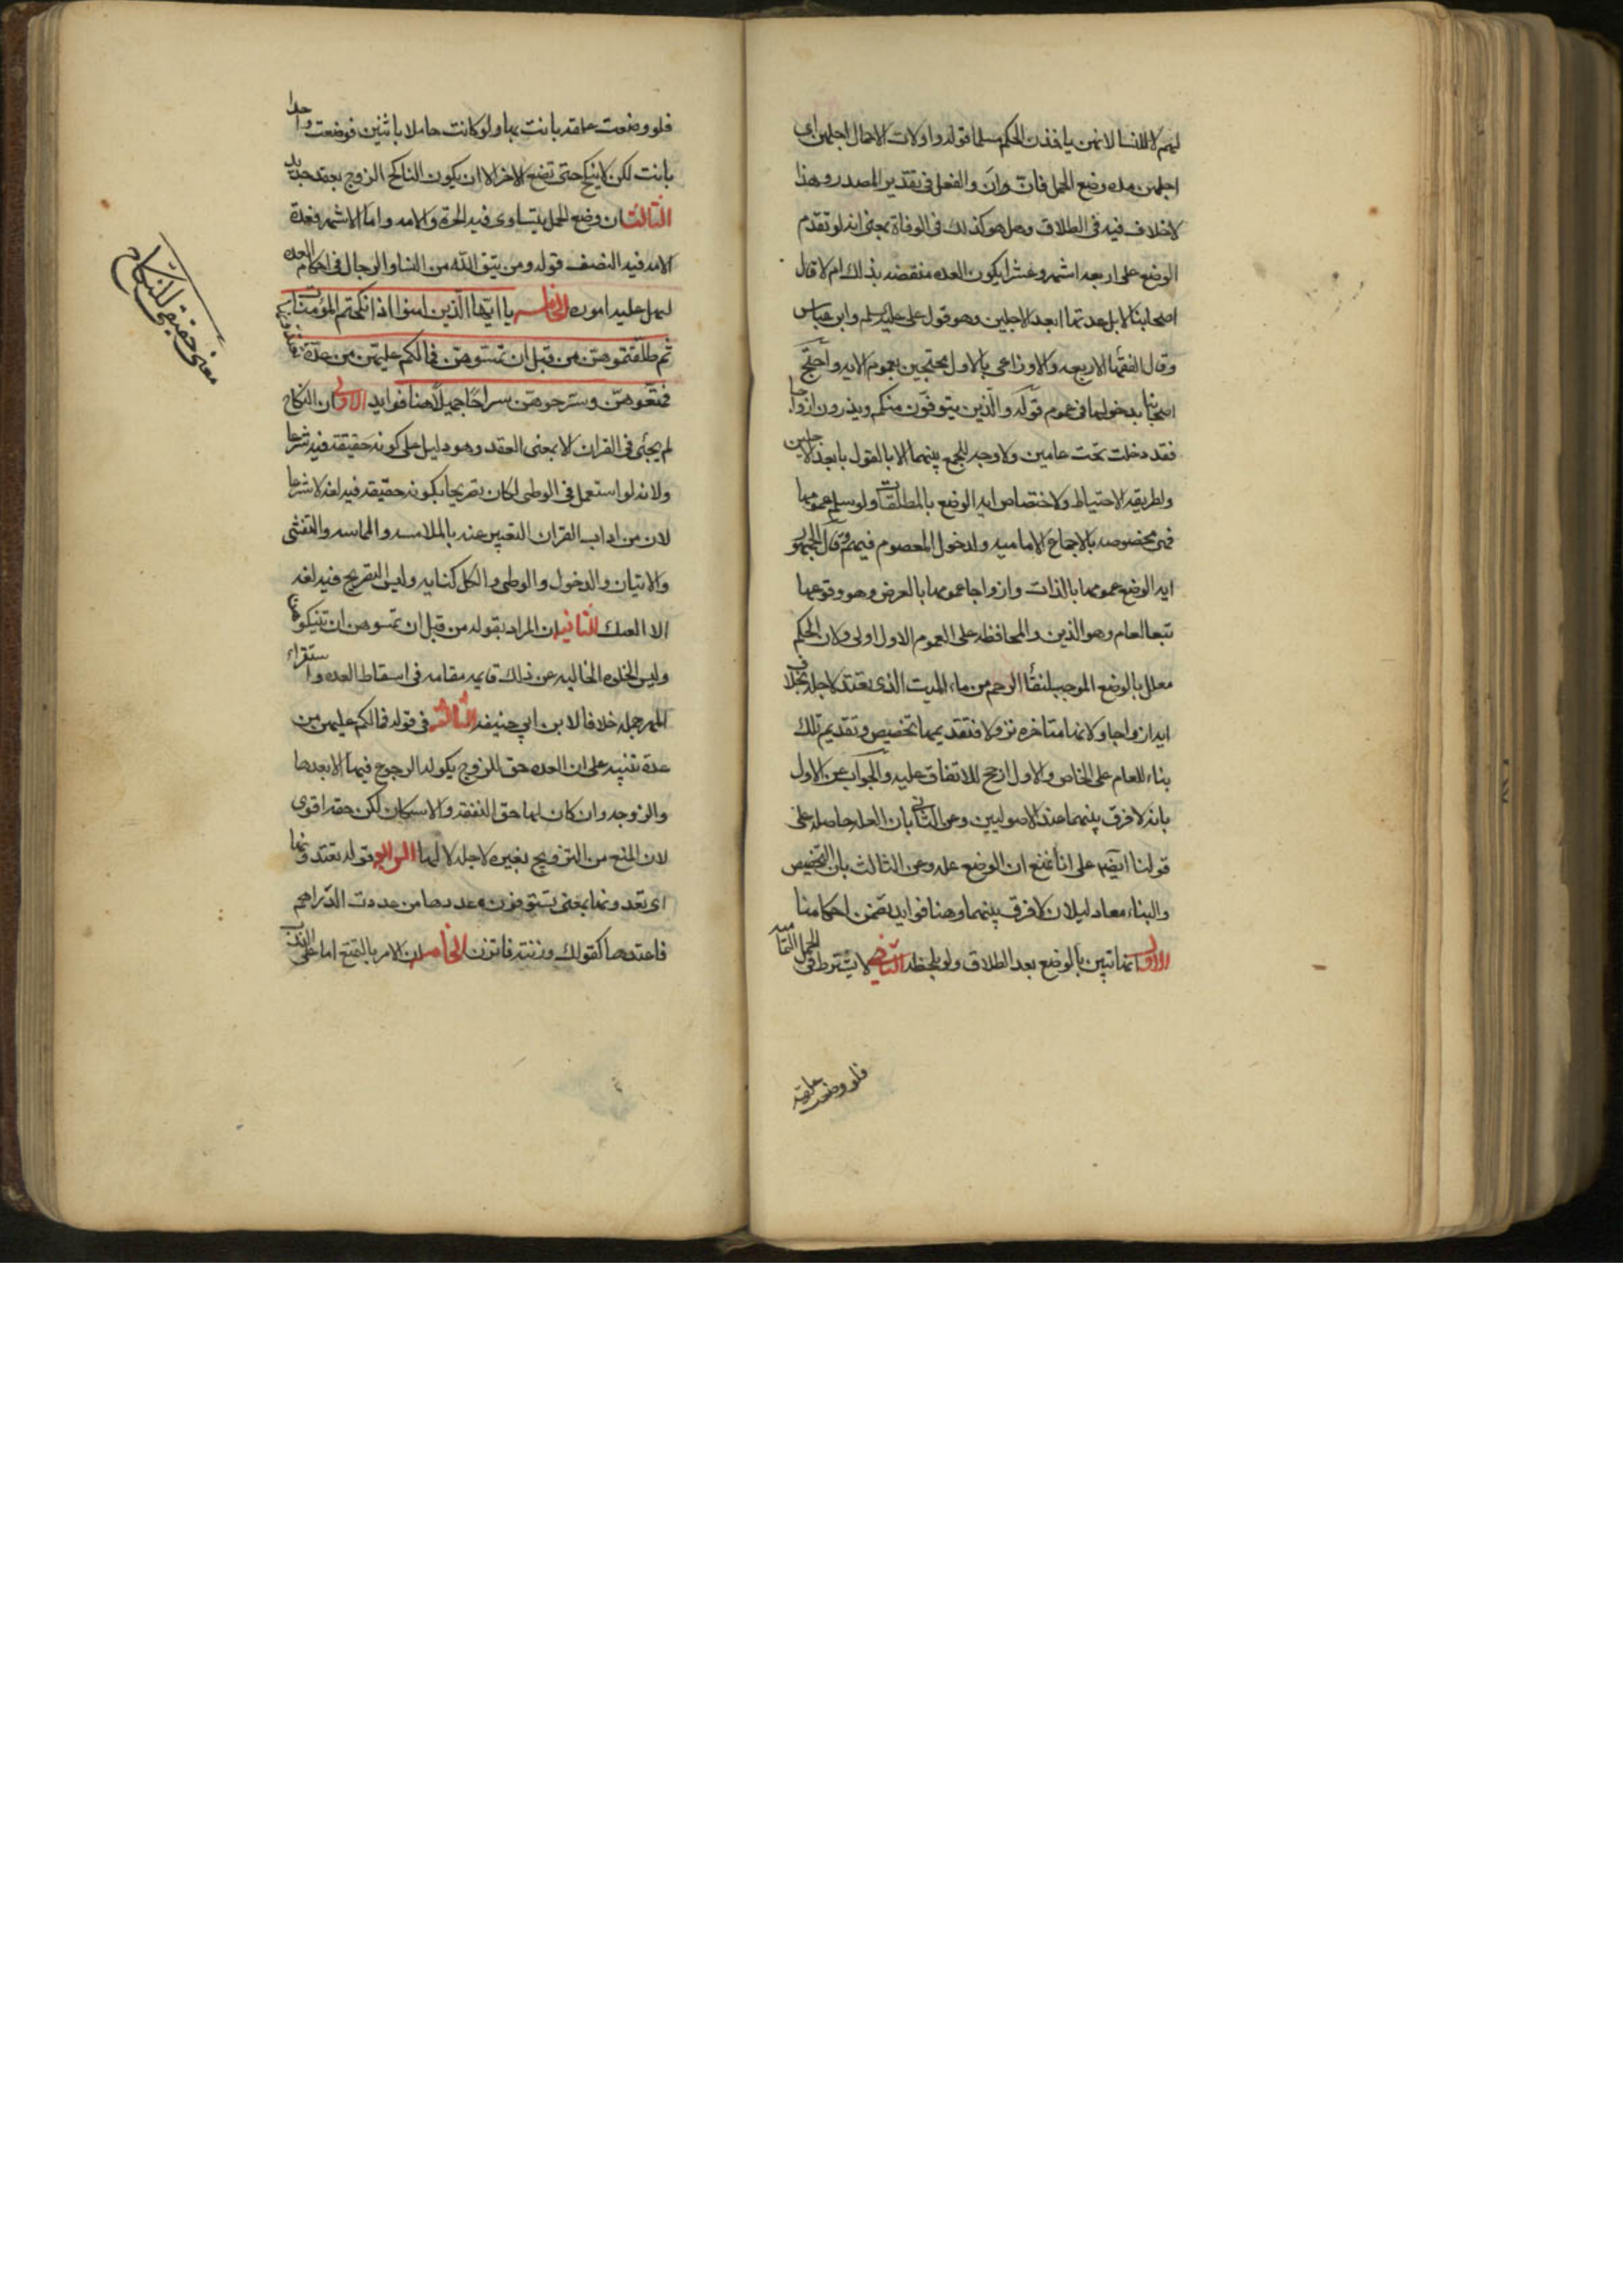 لهم لا للنسا لانهن ياخذن الحكم مسلما قوله واولات الاحمال اجلهن اى
اجلهن مده وضع الحمل فانّ وان والفعل فى تقدير المصدر وهذا
لاخلاف فيه فى الطلاق وهل هو كذلك فى الوفاة بمعنى انه لو تقدم
الوضع على اربعه اشهر وعشرا يكون العده منقضيه بذلك ام لا قال
اصحابنا لا بل عدتها ابعد الاجلين وهو قول على عليه السلم وابن عباس
وقال الفقهأ الاربعه والاوزاعى بالاول محتجين بعموم الايه واحتج
اصحابنا بدخولها فى عموم قوله والذين يتوفون منكم ويذرون ازواجا
فقد دخلت تحت عامين ولا وجه للجمع بينهما الا بالقول بابعد الاجلين
ولطريقه الاحتياط ولاختصاص ايه الوضع بالمطلقات ولو سلم عمومها
فهى مخصوصه بالاجماع الاماميه ولدخول المعصوم فيهم وقال الجمهور
ايه الوضع عمومها بالذات وازواجا عمومها بالعرض وهو وقوعها
تبعا لعام وهو الذين والمحافظه على العموم الاول اولى ولان الحكم
معلل بالوضع الموجب لنقأ الرحم من ماء الميت الذى يعتد لاجله بخلاف
ايه ازواجا ولانها متاخره نزولا فتقديمها تخصيص وتقديم تلك
بناء للعام على الخاص والاول ارجح للاتفاق عليه والجواب عن الاول
بانه لا فرق بينهما عند الاصوليين وعن الثانى بان العله حاصله على
قولنا ايضم على انا نمنع ان الوضع عله وعن الثالث بان التخصيص
والبناء معا دليلان لا فرق بينهما وهنا فوايد تضمن احكامنا
الاولى انها تبين بالوضع بعد الطلاق ولو بلحظه الثانى لا يشترط فى الحمل التماميه
فلو وضعت علقه
فلو وضعت علقه بانت بها ولو كانت حاملا باثنين فوضعت واحدا
بانت لكن لا ينكح حتى تضع الاخر الا ان يكون الناكح الزوج بعقد جديد
الثالث ان وضع الحمل يتساوى فيه الحرة والامه واما الاشهر فعدة
الامه فيه النصف قوله ومن يتق الله من النسا والرجال فى احكام العده
ليهل عليه اموره الخامسه يا ايّها الّذين امنوا اذا نكحتم المؤمنات
ثم طلّقتموهنّ من قبل ان تمسّوهنّ فمالكم عليهنّ من عدّة تعتدّونها
فمتّعوهنّ وسرّحوهنّ سراحًا جميلًا هنا فوايد الاولى ان النكاح
لم يجئ فى القران الا بمعنى العقد وهو دليل على كونه حقيقة فيه شرعا
ولانه لو استعمل فى الوطى لكان تصريحا بكونه حقيقه فيه لغه لا شرعا
لان من اداب القران التعبير عنه بالملامسه والمماسه والتغشى
والاتيان والدخول والوطى والكل كنايه وليس التصريح فيه لغه
الا النيك الثانيه ان المراد بقوله من قبل ان تمسوهن ان تنيكوهن
وليس الخلوه الخاليه عن ذلك قايمه مقامه فى اسقاط العده واستقراء
المهر جمله خلافا لابن ابى حنيفه الثالثه فى قوله فمالكم عليهن من
عدة تنبيه على ان العده حق للزوج يكون له الرجوع فيها لا بعدها
والزوجه وان كان لها حق النفقه والاسكان لكن حقه اقوى
لان المنع من التزويج بغيره لاجله لا لها الرابع قوله تعتدونها
اى تعدونها بمعنى تستوفون عددها من عددت الدّراهم
فاعتدها كقولك وزنته فاتزن الخامسه ان الامر بالتمتع اما على الندب
معنى حقيقى للنكاح